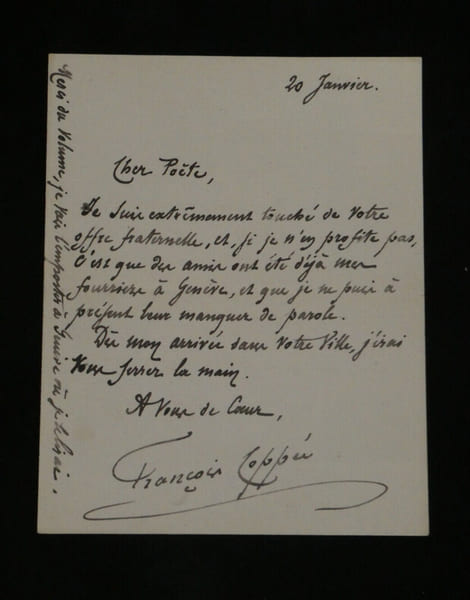 20 Janvier.
Cher Poëte,
Je suis extrêmement touché de votre
offre fraternelle, et, si je n'en profite pas,
C'est que des amis ont été déjà mes
fourriers à Genève, et que je ne puis à
présent leur manquer de parole.
Dès mon arrivée dans votre Ville, j'irai
vous serrer la main.
A vous de Cœur,
François Coppée
Merci du Volume, je vais l'emporter à où je le lirai.